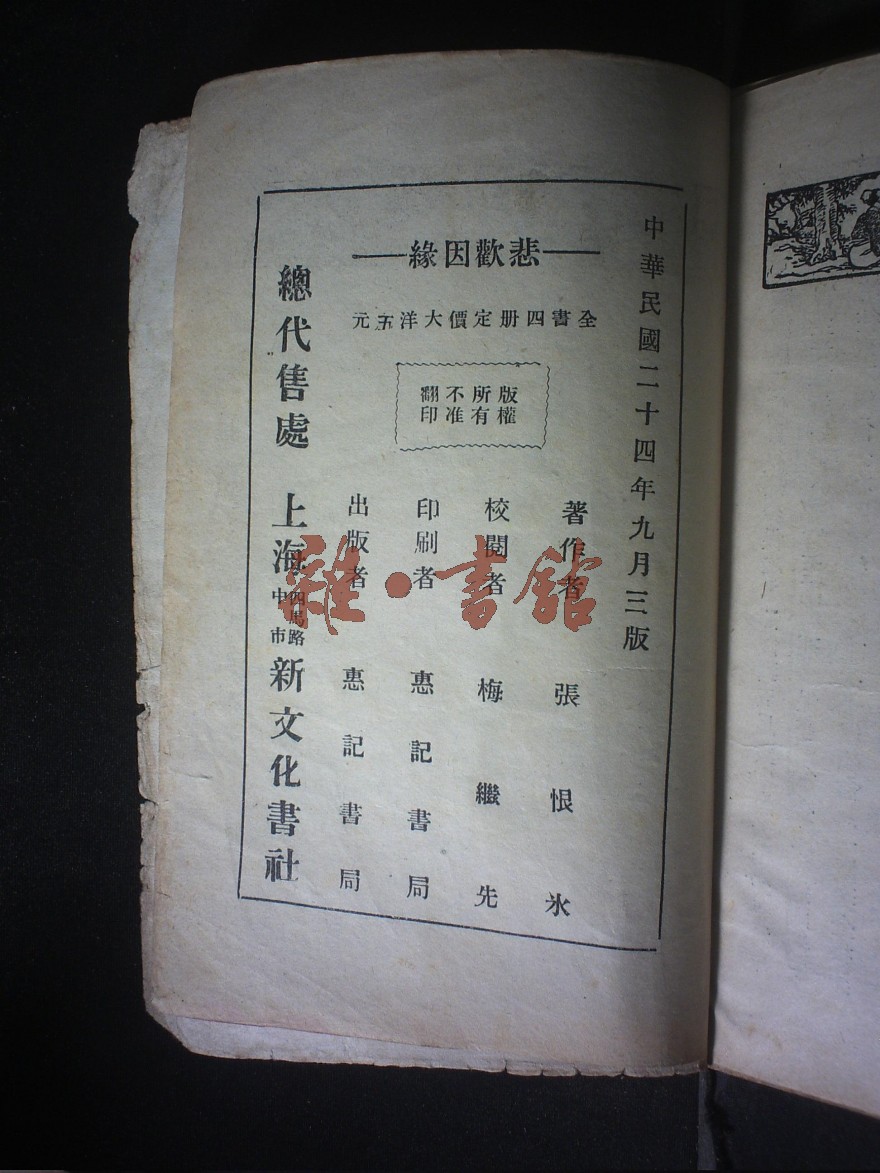 中華民國二十四年九月三版
悲歡因緣
全書四册定價大洋五元
版權
所有
不准
翻印
著作者 張恨氷
校閱者 梅繼先
印刷者 惠記書局
出版者 惠記書局
總代售處 上海四馬路中市 新文化書社
雜·書館